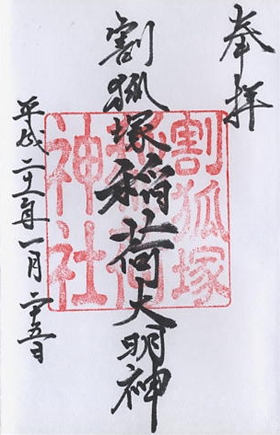 奉拝
割狐塚稲荷大明神
割狐塚
稲荷
神社
平成二十二年一月二十五日